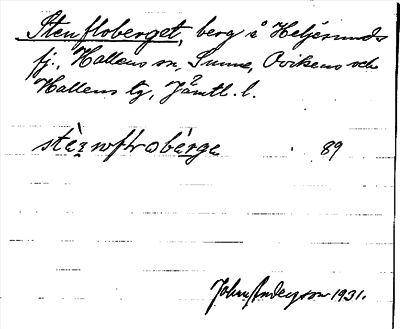 Stenfloberget, berg å Heljesunds
fj., Hallens sn, Sunne, Ovikens och
Hallens tg, Jämtl. l.
89
John Anderson 1931.